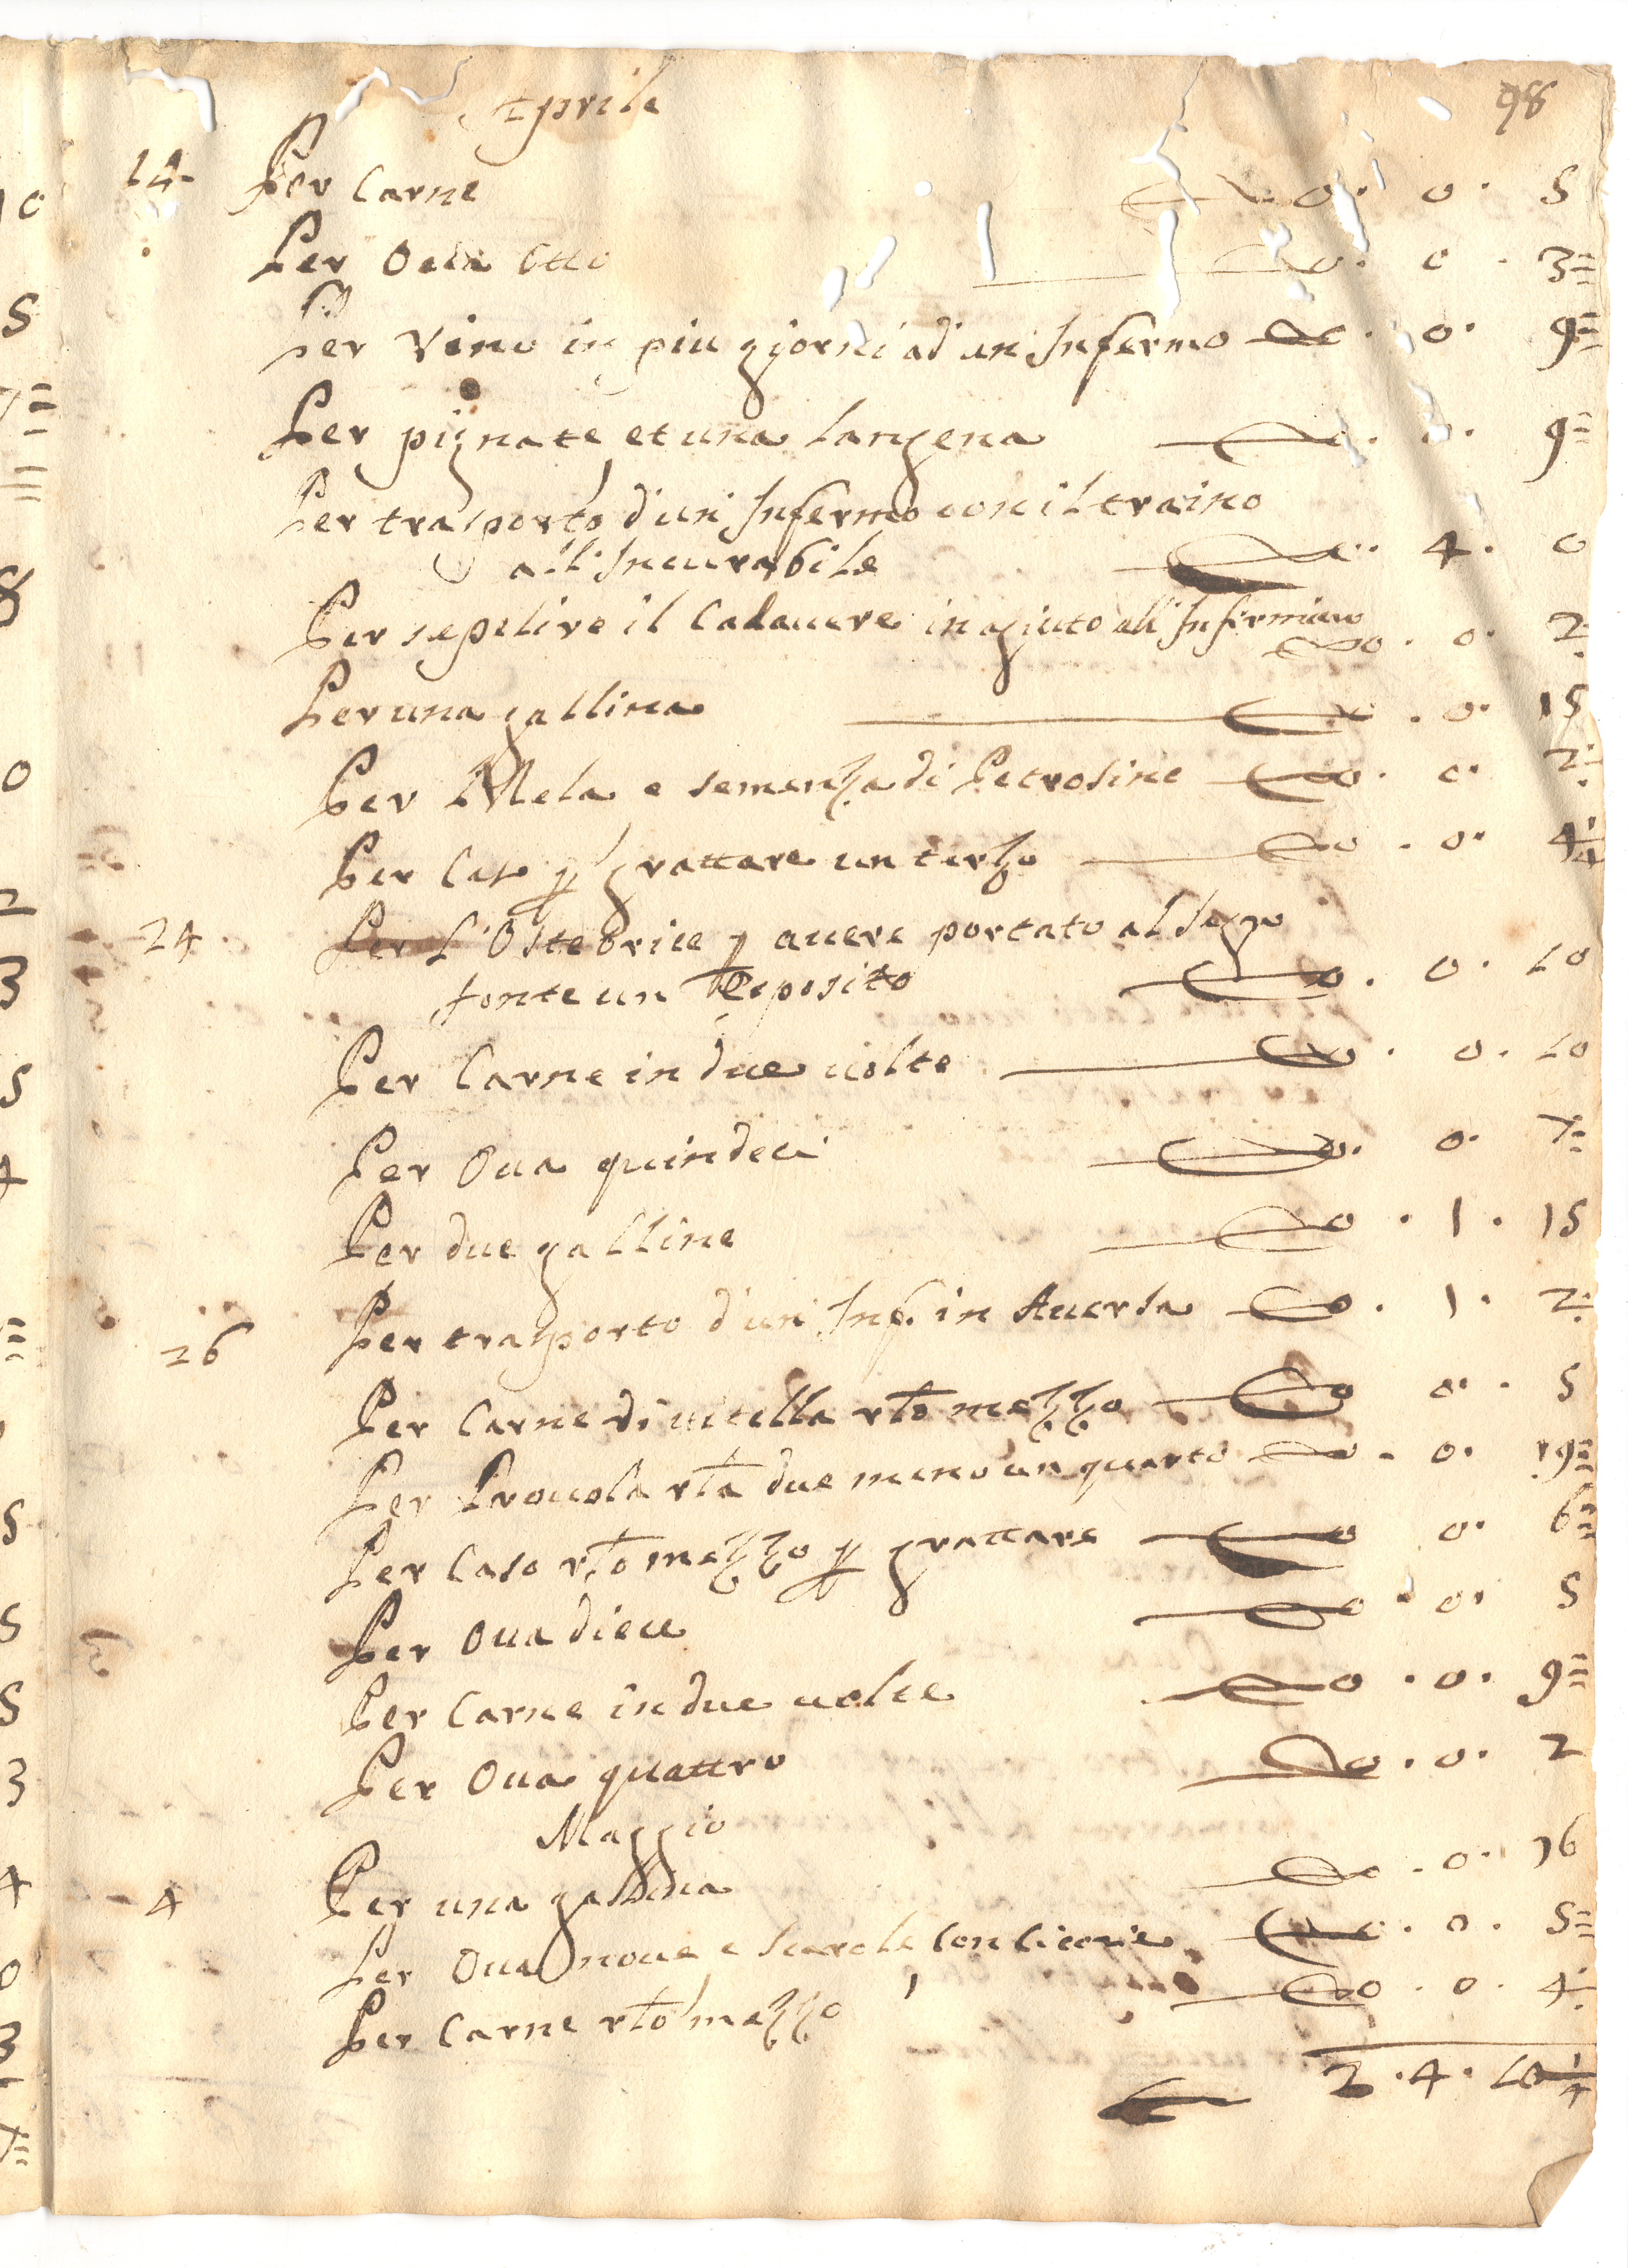 Aprile
98
14 Per Carne 0. 0. 5
Per Oua Otto 0. 0. 3=
Per Vino in piu giorni ad un Infermo 0. 0. 9=
Per pignate et una Langena 0. 0. 9=
Per trasporto d'un Infermo con il traino
all'Incurabile 0. 4. 0
Per sepelire il Cadauere in agiuto all'Infirmiero 0. 0. 2:
Per una gallina 0. 0. 15
Per Mela e semenza di Petrosine 0. 0. 2:
Per Caso p grattare un terzo 0. 0. 4 1/4
24 Per L'Ostetrice p auere portato al Segro
fonte un Esposito 0. 0. 10
Per Carne in due uolte 0. 0. 10
Per Oua quindeci 0. 0. 7=
Per due galline 0. 1. 15
26 Per trasporto d'un Inf. in Auersa 0. 1. 2:
Per Carne di uitella rlo mezzo 0 0. 5
Per Prouola rla due meno un quarto 0. 0. 19=
Per Caso rlo mezzo p grattare 0 0. 6=
Per Oua dieci 0. 0. 5
Per Carne in due uolte 0. 0. 9=
Per Oua quattro 0. 0. 2
Maggio
4 Per una gallina 0. 0. 16
Per Oua noue e Scarole con Cicorie 0. 0. 5=
Per Carne rlo mezzo 0. 0. 4:
2. 4. 10 1/4